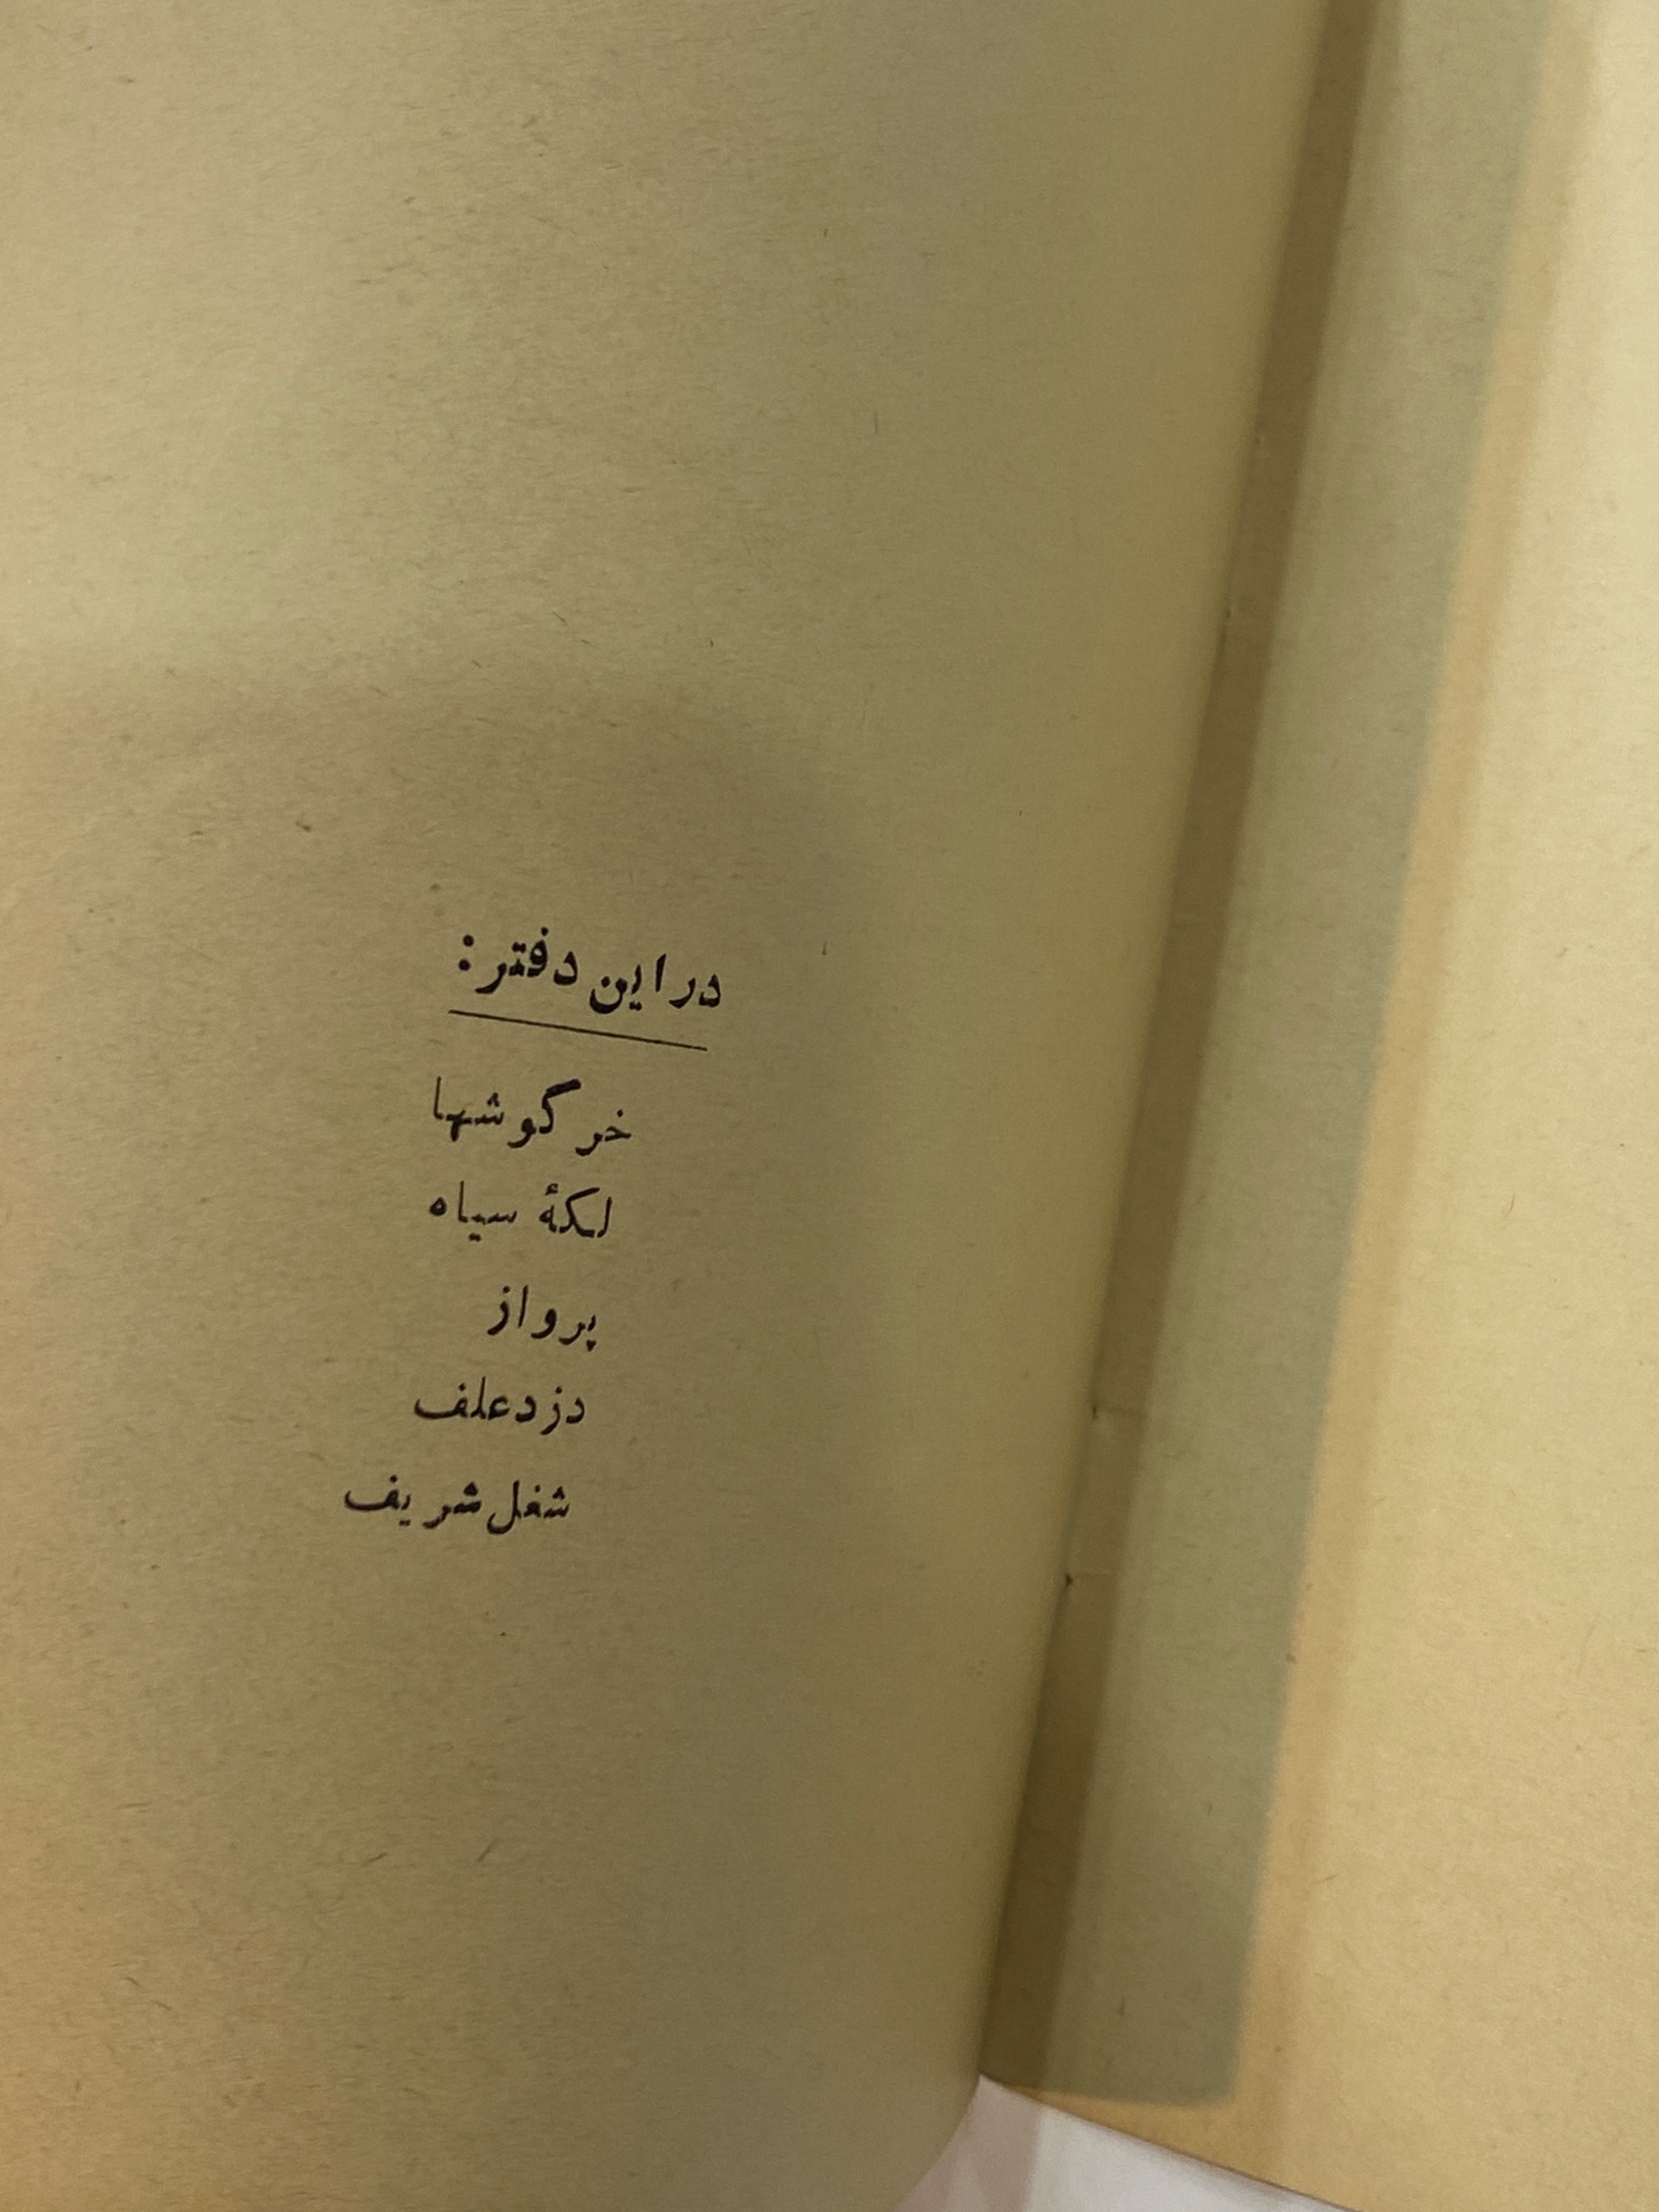 در این دفتر:
خرگوشها
لکهٔ سیاه
پرواز
دزد علف
شغل شریف